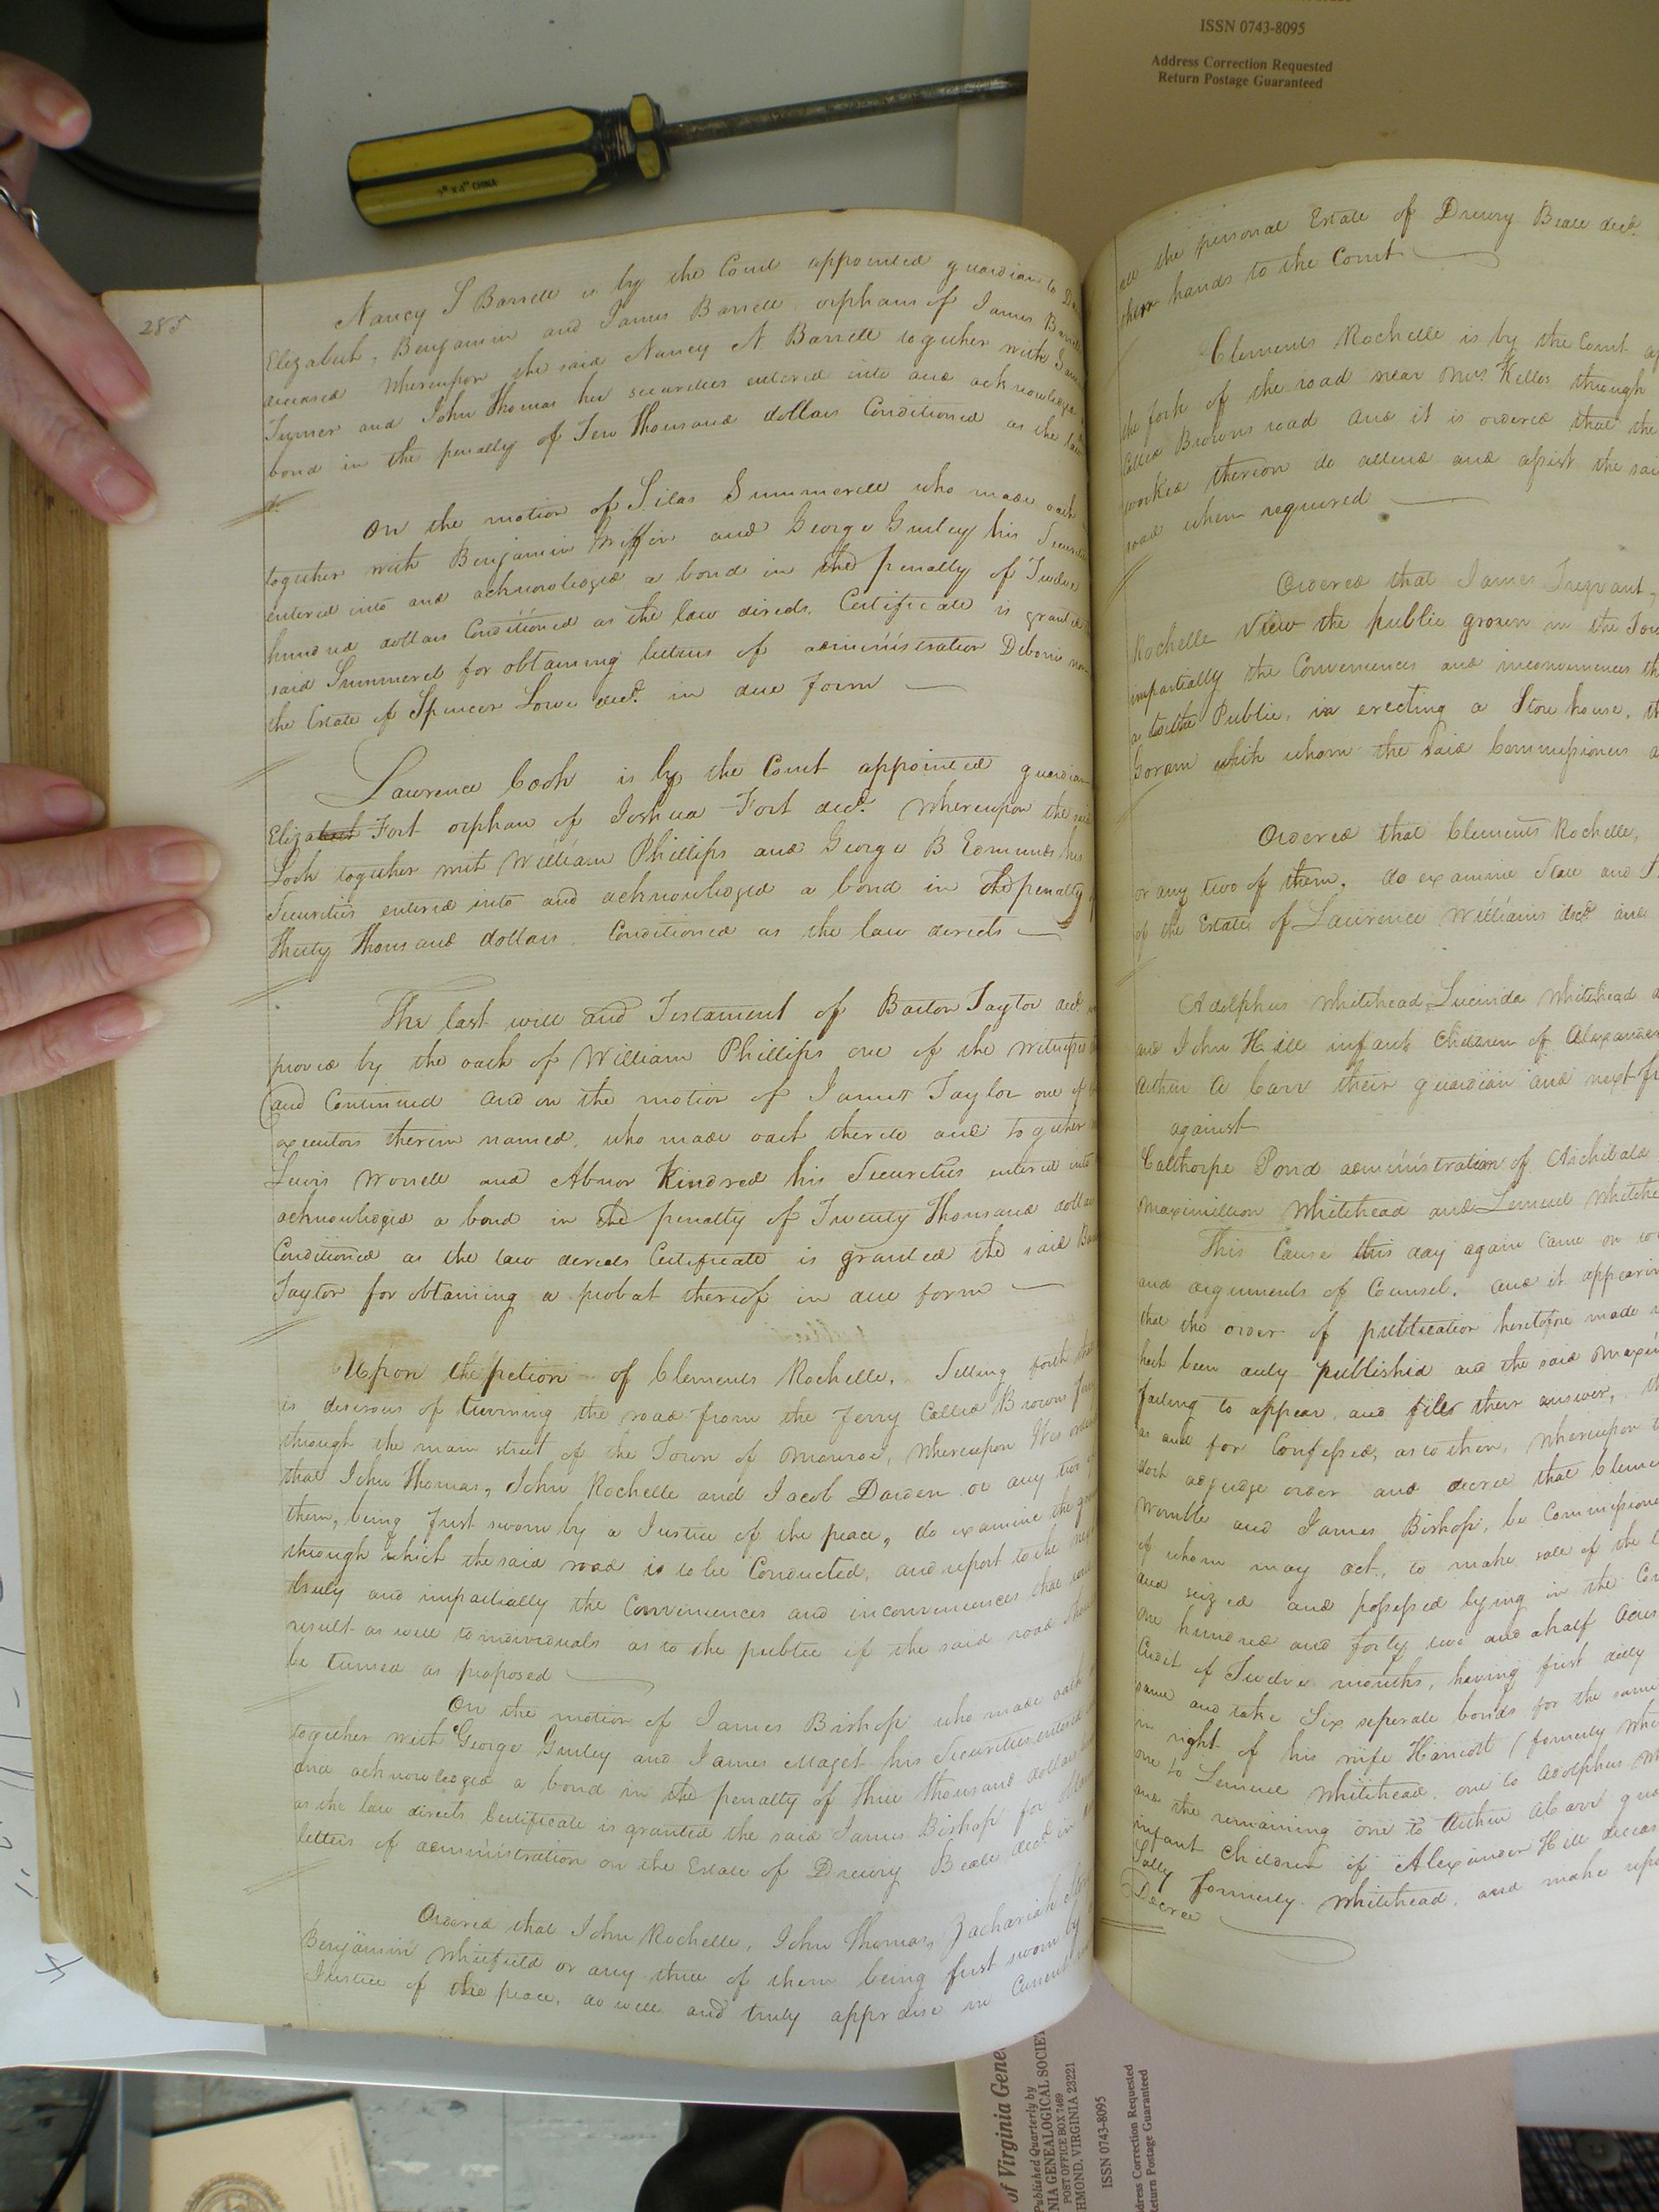 ISSN 0743-8095
Address Correction Requested
Return Postage Guaranteed
CHINA
285
Nancy S Barrett is by the Court appointed guardian to
Elizabeth, Benjamin and James Barrett orphans of James Barrett
deceased Whereupon the said Nancy N Barrett together with
Turner and John Thomas her securities entered into and acknowledged
bond in the penalty of Ten Thousand dollars Conditioned as the law
On the motion of Silas Summerell who made oath
together with Benjamin Griffin and George Gurley his Securities
entered into and acknowledged a bond in the penalty of Twelve
hundred dollars Conditioned as the law directs. Certificate is granted
said Summerel for obtaining letters of administration Debonis non
the Estate of Spencer Lowe decd. in due form
Lawrence Cook is by the Court appointed guardian
Eliza Fort orphan of Joshua Fort decd. Whereupon the said
Cook together wit William Phillips and George B Edmunds his
Securities entered into and acknowledged a bond in the penalty of
Thirty Thousand dollars. Conditioned as the law directs
The last will and Testament of Barton Taylor decd.
proved by the oath of William Phillips one of the witnesses
and Continued and on the motion of James Taylor one of
executors therein named, who made oath thereto and together
Lewis Worrell and Abnor Kindred his Securities entered into
acknowledged a bond in the penalty of Twenty Thousand dollars
Conditioned as the law directs Certificate is granted the said
Taylor for obtaining a probat thereof in due form
Upon the petion of Clements Rochelle, Setting forth that
is desirous of turning the road from the Ferry Called Browns Ferry
through the main street of the Town of Monroe, Whereupon It is ordered
that John Thomas, John Rochelle and Jacob Darden or any two of
them, being first sworn by a Justice of the peace, do examine the ground
through which the said road is to be Conducted, and report to the next
truly and impartially the Conveniences and inconveniences that will
result as well to individuals as to the public if the said road should
be turned as proposed
On the motion of James Bishop who made oath
together with George Gurley and James Maget his Securities entered
and acknowledged a bond in the penalty of three thousand dollars
as the law directs Certificate is granted the said James Bishop for
letters of administration on the Estate of Drewry Beale decd in
Ordered that John Rochelle, John Thomas, Zachariah
Benjamin Whitfield or any three of them being first sworn by
Justice of the peace, do well and truly appraise in Current
all the personal Estate of Drewry Beale decd.
their hands to the Court
Clements Rochelle is by the Court
the fork of the road near Mrs. Kellos through
Called Browns road And it is ordered that the
worked thereon do attend and assist the said
road when required
Ordered that James Trezvant,
Rochelle View the public ground in the Town
impartially the Conveniences and inconveniences
as to the Public, in erecting a Store house,
Goram which whom the said Commissioners
Ordered that Clements Rochelle,
or any two of them, do examine State and
of the Estate of Lawrence Williams decd. and
Adolphus Whitehead, Lucinda Whitehead
and John Hill infant Children of Alexander
Arthur A Carr their guardian and next fr
against
Calthorpe Pond administration of Archibald
Maximillion Whitehead and Lemuel Whitehe
This Cause this day again Came on
and arguments of Counsel. and it appearin
that the order of publication heretofore made
hath been duly published and the said Maxi
failing to appear, and file their answer,
as and for Confessed, as to them, Whereupon
doth adjudge order and decree that Cleme
Womble and James Bishop, be Commissione
of whom may act, to make sale of the
and seized and possessed lying in the Co
One hundred and forty two and a half Acres
Credit of Twelve months, having first duly
same and take Six seperate bonds for the same
in right of his wife Harriott (formerly Whi
one to Lemuel Whitehead, one to Adolphus Wh
and the remaining one to Arthur A Carr gua
infant Children of Alexander Hill deceas
Sally formerly Whitehead, and make repo
Decree
of Virginia Gene
Published Quarterly by
NIA GENEALOGICAL SOCIET
POST OFFICE BOX 7469
HMOND, VIRGINIA 23221
ISSN 0743-8095
ddress Correction Requested
Return Postage Guaranteed